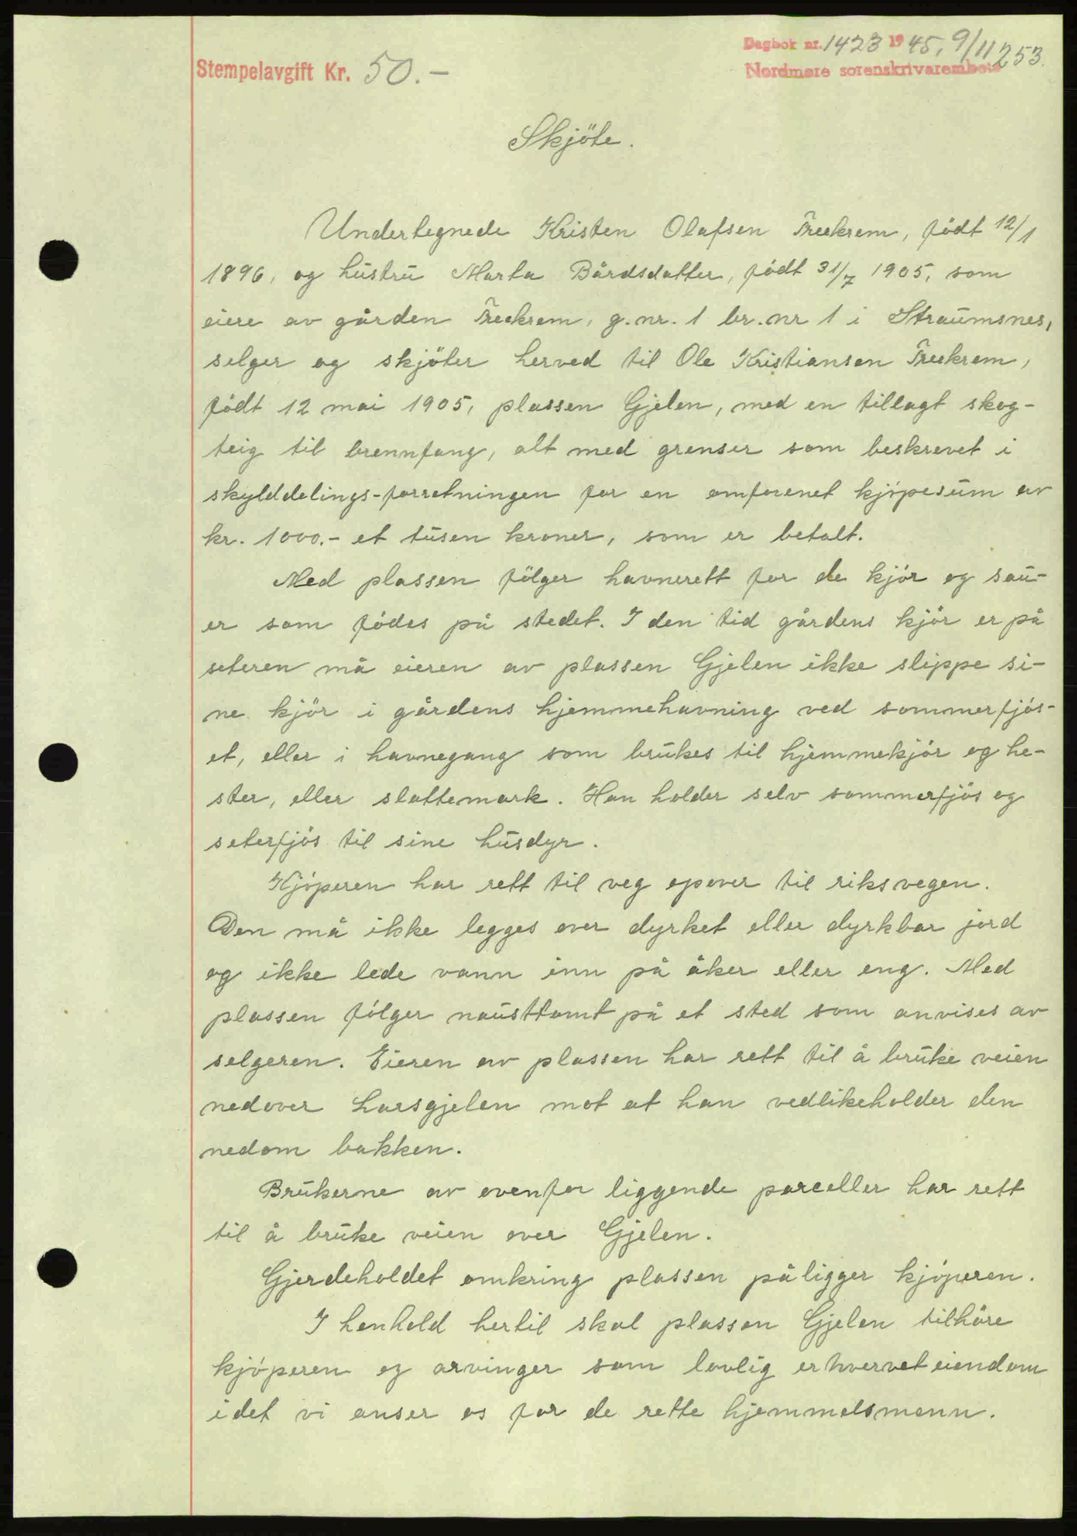 Stempelavgift Kr. 50.-
Dagbok nr. 1423 1945, 9/11 253.
Nordmøre sorenskrivarembete
Skjöte.
Undertegnede Kristen Olafsen Treekrem, födt 12/1
1896, og hustru Marta Bårdsdatter, födt 31/7 1905, som
eiere av gården Treekrem, g.nr. 1 br.nr 1 i Straumsnes,
selger og skjöter herved til Ole Kristiansen Treekrem,
födt 12 mai 1905, plassen Gjelen, med en tillagt skog-
teig til brennfang, alt med grenser som beskrevet i
skylddelings-forretningen for en omforenet kjöpesum av
kr. 1000.- et tusen kroner, som er betalt.
Med plassen fölger havnerett for de kjör og sau-
er som födes på stedet. I den tid gårdens kjör er på
seteren må eieren av plassen Gjelen ikke slippe si-
ne kjör i gårdens hjemmehavning ved sommerfjös-
et, eller i havnegang som brukes til hjemmekjör og he-
ster, eller slattemark. Han holder selv sommerfjös og
seterfjös til sine husdyr.
Kjöperen har rett til veg opover til riksvegen.
Den må ikke legges over dyrket eller dyrkbar jord
og ikke lede vann inn på åker eller eng. Med
plassen fölger nausttomt på et sted som anvises av
selgeren. Eieren av plassen har rett til å bruke veien
nedover Larsgjelen mot at han vedlikeholder den
nedom bakken.
Brukerne av ovenfor liggende parceller har rett
til å bruke veien over Gjelen.
Gjerdeholdet omkring plassen påligger kjöperen.
I henhold hertil skal plassen Gjelen tilhöre
kjöperen og arvinger som lovlig erhvervet eiendom
idet vi anser os for de rette hjemmelsmenn.